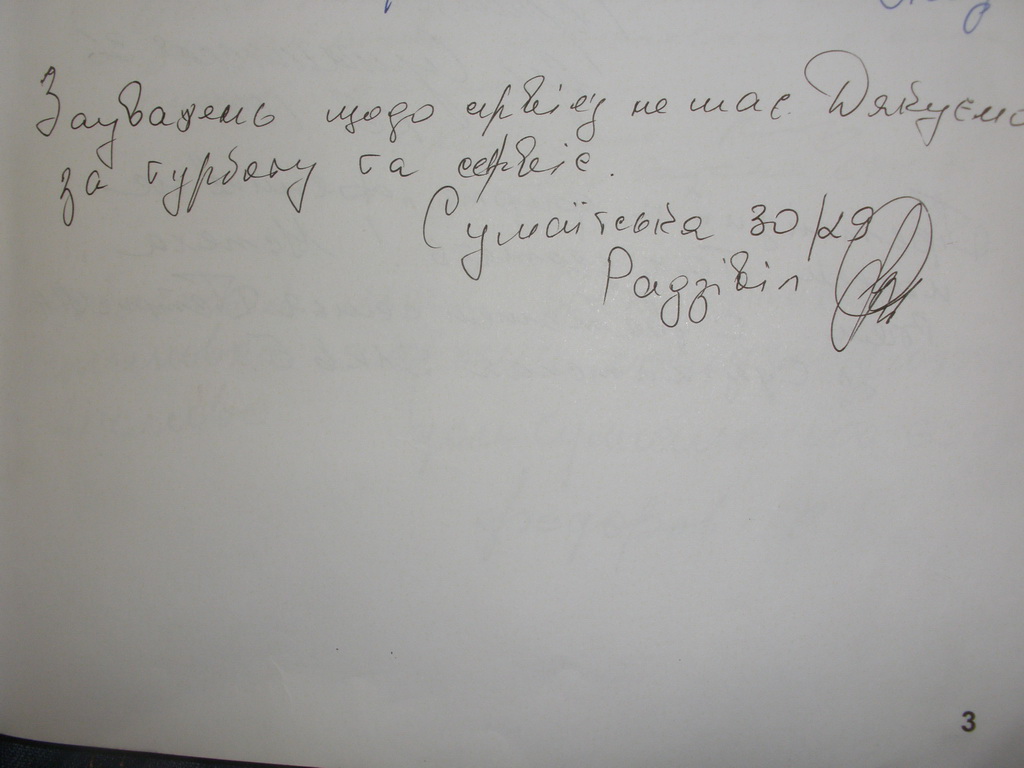 Зауважень щодо сервісу не має. Дякуємо
за турботу та сервіс.
Сумаїтська 30/29
Радзівіл
3